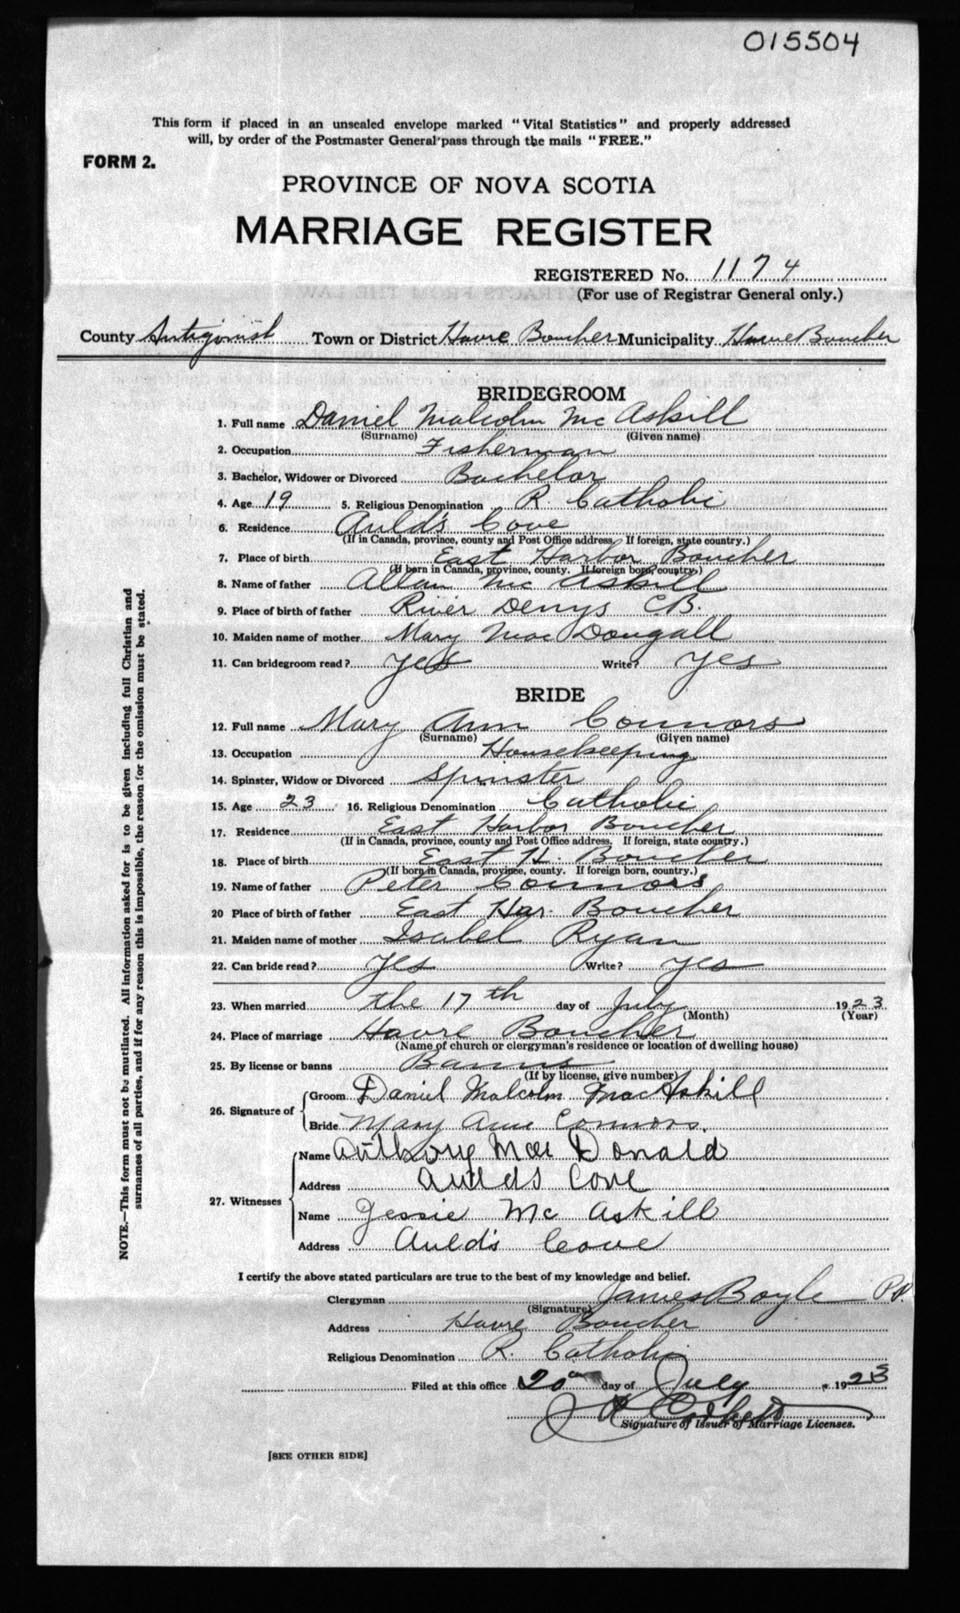 015504
This form if placed in an unsealed envelope marked "Vital Statistics" and properly addressed
will, by order of the Postmaster General pass through the mails "FREE."
FORM 2.
PROVINCE OF NOVA SCOTIA
MARRIAGE REGISTER
REGISTERED No. 1174
(For use of Registrar General only.)
County Antigonish Town or District Havre Boucher Municipality Havre Boucher
BRIDEGROOM
1. Full name Daniel Malcolm McAskill
(Surname) (Given name)
2. Occupation Fisherman
3. Bachelor, Widower or Divorced Bachelor
4. Age 19 5. Religious Denomination R. Catholic
6. Residence Auld's Cove
(If in Canada, province, county and Post Office address. If foreign, state country.)
7. Place of birth East Harbor Boucher
(If born in Canada, province, county. If foreign born, country.)
8. Name of father Allan McAskill
9. Place of birth of father River Denys C.B.
10. Maiden name of mother Mary MacDougall
11. Can bridegroom read? yes Write? yes
BRIDE
12. Full name Mary Ann Connors
(Surname) (Given name)
13. Occupation Housekeeping
14. Spinster, Widow or Divorced Spinster
15. Age 23 16. Religious Denomination Catholic
17. Residence East Harbor Boucher
(If in Canada, province, county and Post Office address. If foreign, state country.)
18. Place of birth East H. Boucher
(If born in Canada, province, county. If foreign born, country.)
19. Name of father Peter Connors
20 Place of birth of father East Har. Boucher
21. Maiden name of mother Isabel Ryan
22. Can bride read? yes Write? yes
23. When married the 17th day of July 1923
(Month) (Year)
24. Place of marriage Havre Boucher
(Name of church or clergyman's residence or location of dwelling house)
25. By license or banns Banns
(If by license, give number)
26. Signature of Groom Daniel Malcolm MacAskill
Bride Mary Ann Connors.
27. Witnesses Name Anthony Mac Donald
Address Aulds Cove
Name Jessie McAskill
Address Auld's Cove
I certify the above stated particulars are true to the best of my knowledge and belief.
Clergyman James Boyle P.P.
(Signature)
Address Havre Boucher
Religious Denomination R. Catholic
Filed at this office 20 day of July 1923
Signature of Issuer of Marriage Licenses.
[SEE OTHER SIDE]
NOTE.—This form must not be mutilated. All information asked for is to be given including full Christian and
surnames of all parties, and if for any reason this is impossible, the reason for the omission must be stated.